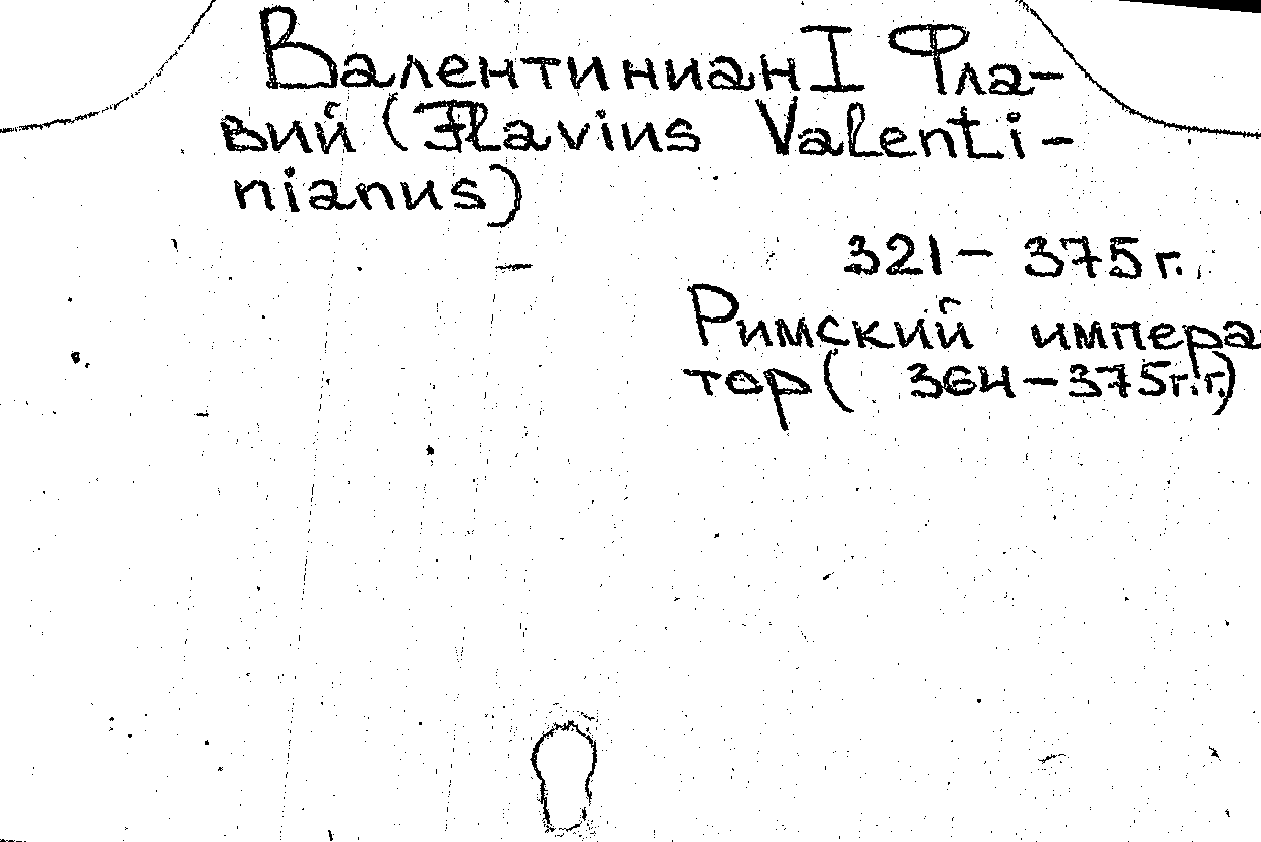 Валентиниан I Фла-
вий (Flavius Valenti-
nianus)
321 - 375 г.
Римский импера
тор ( 364 - 375 г.г.)